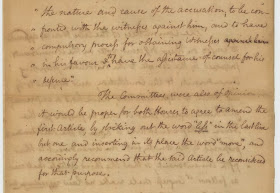 "the nature and cause of the accusation, to be con-
"fronted with the witnesses against him, and to have
"compulsory process for obtaining witnesses
"in his favour, & have the assistance of counsel for his
"defence".
The Committees were also of opinion
it would be proper for both Houses to agree to amend the
first Article, by striking out the word "less" in the last line
but one, and inserting in its place the word "more", and
accordingly recommend that the said Article be reconsidered
for that purpose.